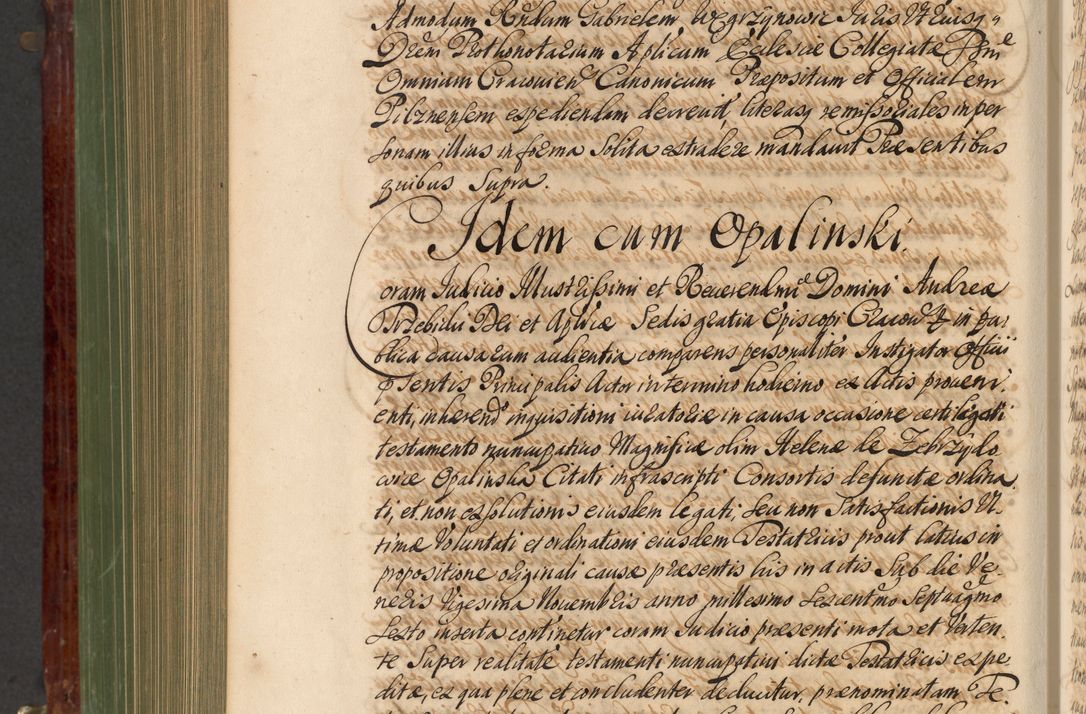 Admodum Rndum Gabrielem Węgrzynowic Juris Utriusq
Drem Prothonotarium Aplicum Ecclesiæ Collegiatæ
Omnium Cracovien Canonicum Præpositum et Officialem
Pilznensem expediendam decrevit, literasq remissoriales in per
sonam illius in forma solita extradere mandavit Præsentibus
quibus supra.
Idem cum Opalinski.
Coram Judicio Illustrissimi et Reverendmi Domini Andreæ
Trzebicki Dei et Aplicæ Sedis gratia Episcopi Cracov in pu
blica causarum audientia comparens personaliter Instigator Officii
psentis Principalis Actor in termino hodierno ex Actis proveni
enti, inhærend inquisitioni juratoriæ in causa occasione certi legati
testamento nuncupativo Magnificæ olim Helenæ de Zebrzydo
wice Opalinska Citati infrascripti Consortis defunctæ ordina
ti, et non exsolutionis eiusdem legati, seu non Satisfactionis Ul
timæ Voluntati et ordinationi eiusdem Testatricis prout latius in
propositione originali causæ præsentis his in actis Sub die Ve
neris Vigesima Novembris anno millesimo Sexcentmo Septuagmo
Sexto inserta continetur coram Judicio præsenti mota et Verten
te Super realitate testamenti nuncupativi dictæ Testatricis expe
ditæ, ex qua plene et concludenter deducitur, prænominatam Te